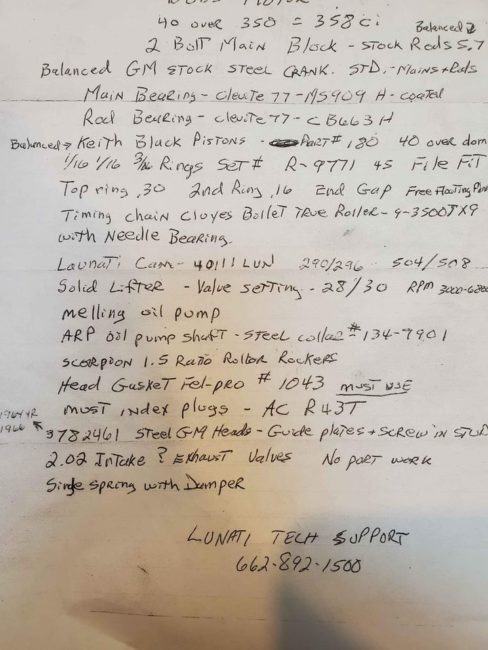 40 over 350 = 358 ci Balanced
2 Bolt Main Block - stock Rods 5.7
Balanced GM Stock Steel CRANK. STD. - Mains + Rods
Main Bearing - Clevite 77 - MS909 H - coated
Rod Bearing - Clevite 77 - CB663 H
Balanced → Keith Black Pistons - Part # 180 40 over dom
1/16 1/16 3/16 Rings Set # R-9771 45 File Fit
Top ring .30 2nd Ring .16 End Gap Free Floating Pin
Timing chain Cloyes Bollet True Roller - 9-3500TX9
with Needle Bearing.
Launati Cam - 40111 LUN 290/296 504/508
Solid Lifter - Valve setting - 28/30 RPM 3000-6800
melling oil pump
ARP oil pump shaft - steel collar # 134-7901
Scorpoon 1.5 Ratio Rollor Rockers
Head Gasket Fel-pro # 1043 must use
must index plugs - AC R43T
1964 YR
1966
3782461 Steel GM Heads - Guide plates + Screw in STUD
2.02 Intake & Exhaust Valves No port work
Single spring with Damper
LUNATI TECH SUPPORT
662-892-1500